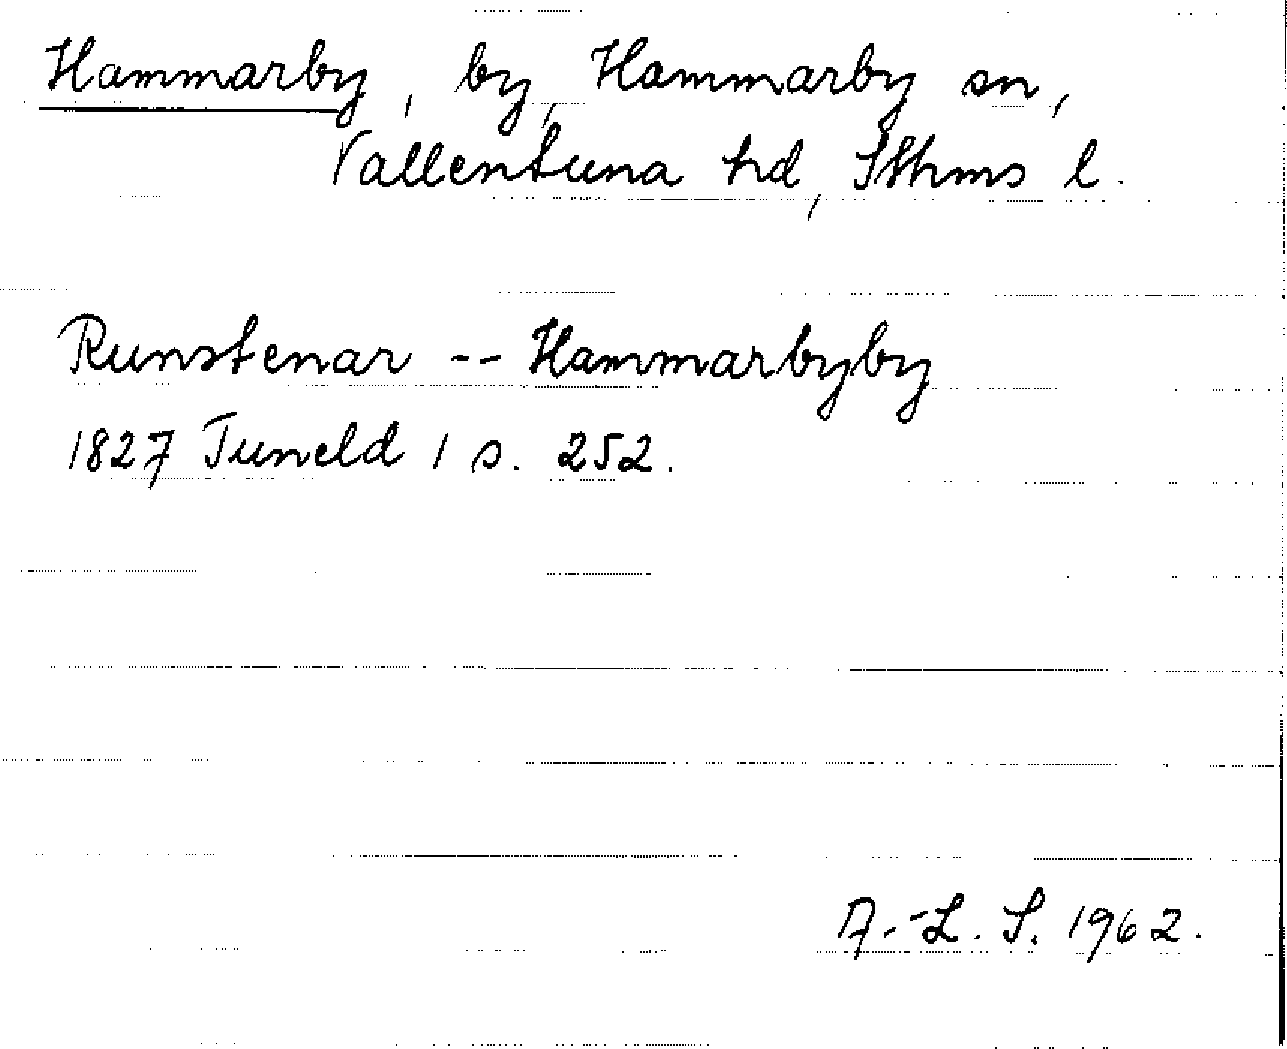 Hammarby, by, Hammarby sn,
Vallentuna hd, Sthms l.
Runstenar -- Hammarbyby
1827 Tuneld 1 s. 252.
A.-L. S. 1962.